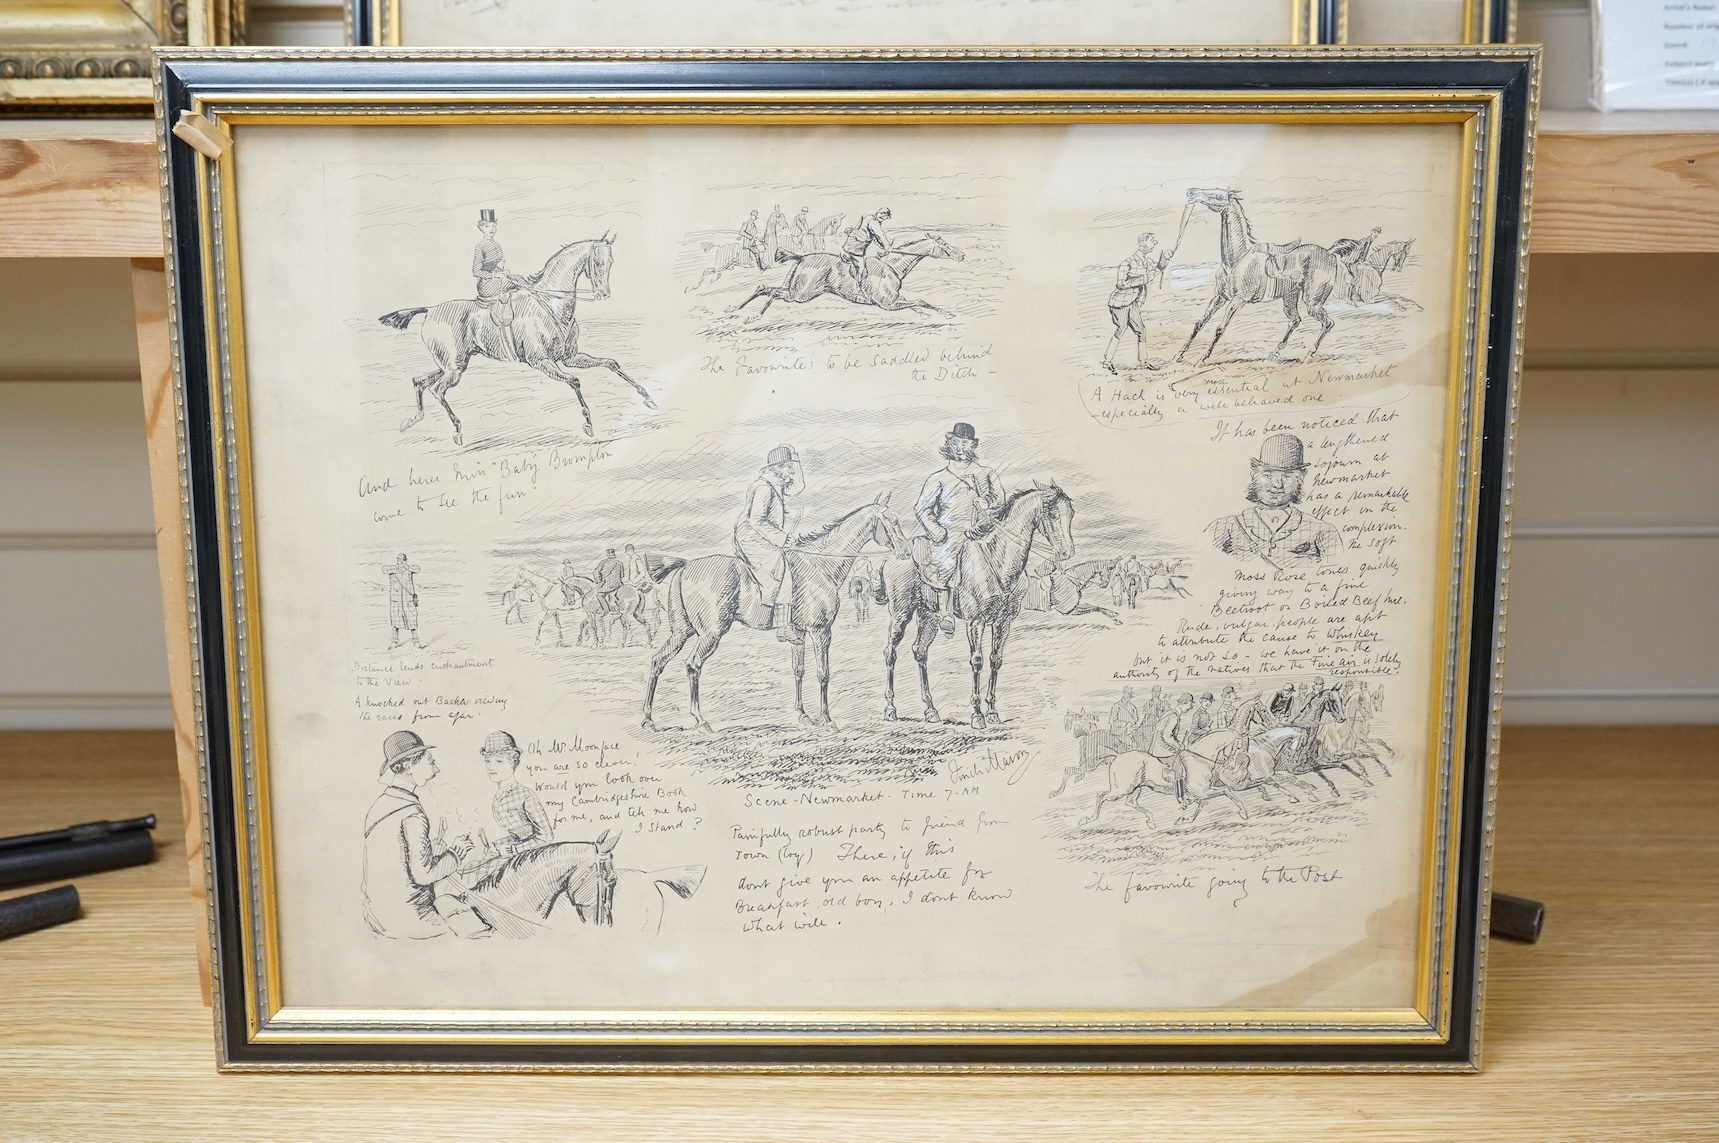 And here's Miss "Baby" Brompton
come to see the fun.
The Favourites to be saddled behind
the Ditch -
A Hack is very essential at Newmarket
- especially a well behaved one.
It has been noticed that
a lengthened
sojourn at
Newmarket
has a remarkable
effect on the
complexion.
The soft
Moss Rose tones quickly
giving way to a fine
Beetroot or Boiled Beef hue.
Rude, vulgar people are apt
to attribute the cause to Whiskey
but it is not so - we have it on the
authority of the natives that the Fine air is solely
responsible.
Distance lends enchantment
to the View -
A knocked out Backer viewing
the races from afar.
Oh Mr. Moonface
you are so clever!
Would you look over
my Cambridgeshire Book
for me, and tell me how
I stand?
Scene - Newmarket - Time 7. AM
Painfully robust party to friend from
Town (loq) There, if this
dont give you an appetite for
Breakfast, old boy, I dont know
what will.
The favourite going to the Post